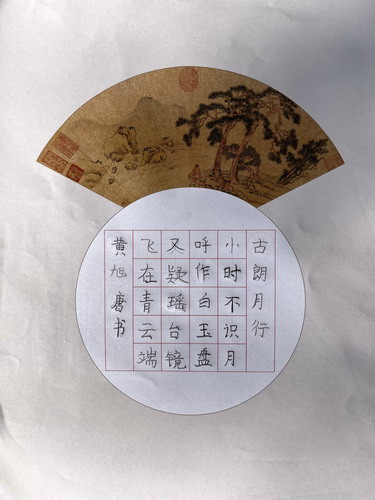 古朗月行
小时不识月
呼作白玉盘
又疑瑶台镜
飞在青云端
黄旭唐书